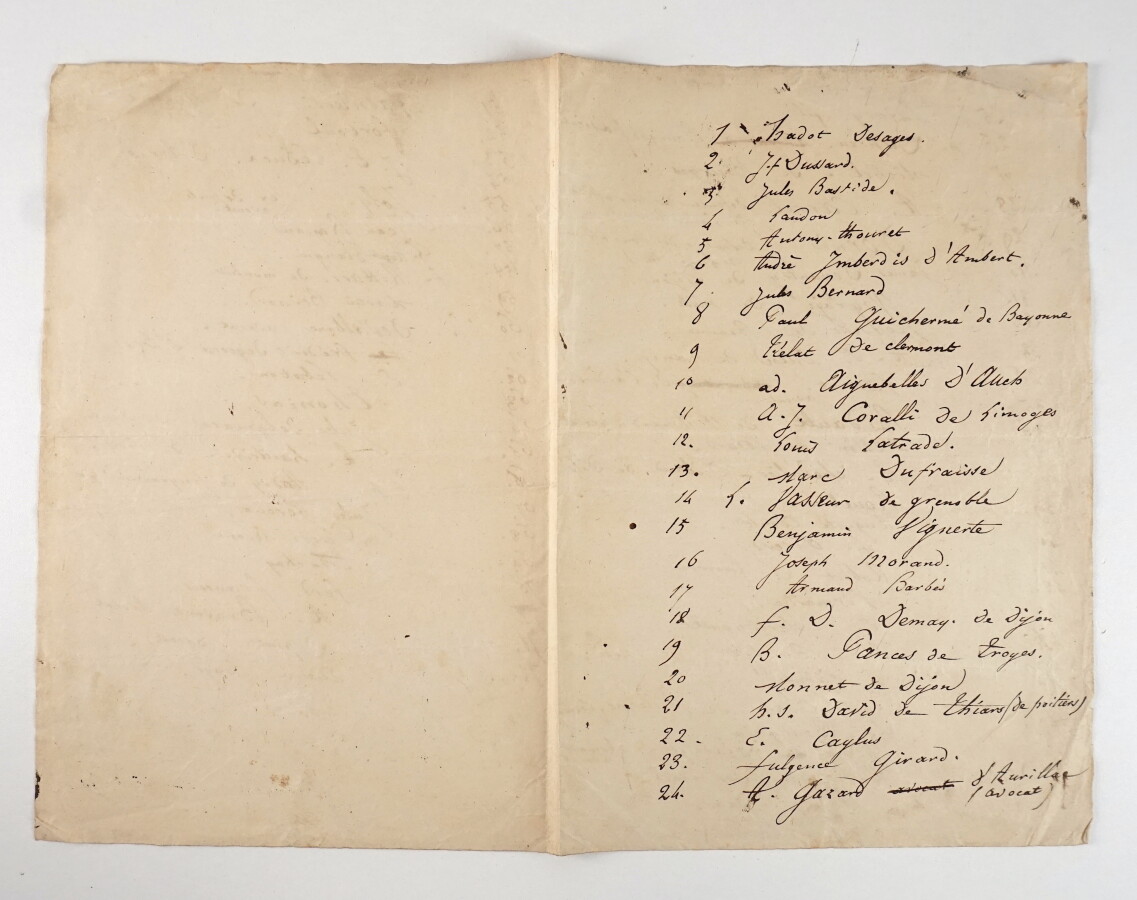 1 hadot Desages.
2. J.f Dussard.
3 Jules Bastide.
4 Landon
5 Antony-thouret
6 André Imberdis d'Ambert.
7 Jules Bernard
8 Paul Guichermé de Bayonne
9 Trélat de clermont
10 ad. Aiguebelles D'Auch
11 A. J. Coralli de Limoges
12. Louis Latrade.
13. Marc Dufraisse
14 L. Vasseur de grenoble
15 Benjamin Vignerte
16 Joseph Morand.
17 Armand Barbès
18 f. D. Demay. de Dijon
19 B. Pances de Troyes.
20 Monnet de Dijon
21 h. s. David de Thiars (de poitiers)
22. E. Caylus
23. fulgence Girard.
24. Gazard avocat d'Aurillac
(avocat)